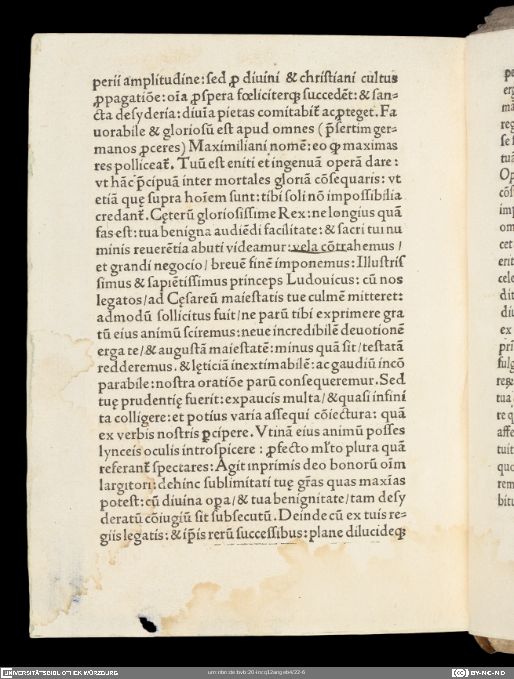 perii amplitudine: sed ꝓ diuini & christiani cultus
ꝓpagatiõe: oĩa ꝓspera fœliciterqꝫ succedẽt: & san⸗
cta desyderia: diuĩa pietas comitabit᷑ ac ꝓteget. Fa
uorabile & gloriosũ est apud omnes (p̃sertim ger⸗
manos ꝓceres) Maximiliani nomẽ: eo ꝙ maximas
res polliceat᷑. Tuũ est eniti et ingenuã operã dare:
vt hãc p̃cipuã inter mortales gloriã cõsequaris: vt
etiã quę supra hoĩem sunt: tibi soli nõ impossibilia
credant᷑. Cęterũ gloriosissime Rex: ne longius quã
fas est: tua benigna audiẽdi facilitate: & sacri tui nu
minis reuerẽtia abuti videamur: vela cõtrahemus /
et grandi negocio / breuẽ finẽ imponemus: Illustris
simus & sapiẽtissimus princeps Ludouicus: cũ nos
legatos / ad Cęsareũ maiestatis tue culmẽ mitteret:
admodũ sollicitus fuit / ne parũ tibi exprimere gra
tũ eius animũ sciremus: neue incredibilẽ deuotionẽ
erga te / & augustã maiestatẽ: minus quã sit / testatã
redderemus. & lęticiã inextimabilẽ: ac gaudiũ incõ
parabile: nostra oratiõe parũ consequeremur. Sed
tuę prudentię fuerit: ex paucis multa / & quasi infini
ta colligere: et potius varia assequi cõiecturа: quã
ex verbis nostris ꝑcipere. Vtinã eius animũ posses
lynceis oculis introspicere: ꝓfecto ml̃to plura quã
referant᷑ spectares: Agit inprimis deo bonorũ oĩm
largitori: dehinc sublimitati tuę gr̃as quas maxĩas
potest: cũ diuina oꝑa / & tua benignitate / tam desy
deratũ cõiugiũ sit subsecutũ. Deinde cũ ex tuis re⸗
giis legatis: & ip̃is rerũ successibus: plane dilucideqꝫ
UNIVERSITÄTSBIBLIOTHEK WÜRZBURG
BY-NC-ND